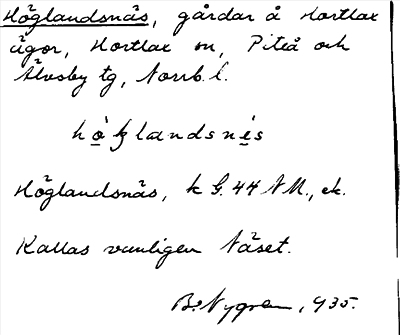 Höglandsnäs, gårdar å Hortlax
ägor, Hortlax sn, Piteå och
Älvsby tg, Norrb. l.
Höglandsnäs, k G. 44 NM., ek.
Kallas vanligen Näset.
B. Nygren, 1935.